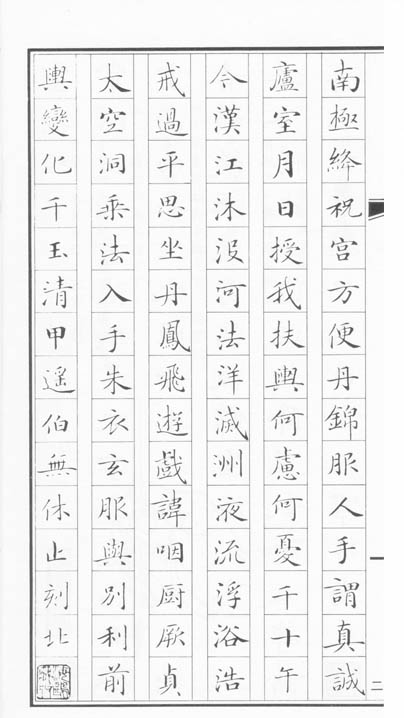 南極絳祝宮方便丹錦服人手謂真誠
廬室月日授我扶輿何慮何憂千十午
今漢江沐沒河法洋滅洲液流浮浴浩
戒過平思坐丹鳳飛遊戲諱咽厨厥貞
太空洞乘法入手朱衣玄服與別利前
輿變化千玉清甲遥伯無休止刻北
二